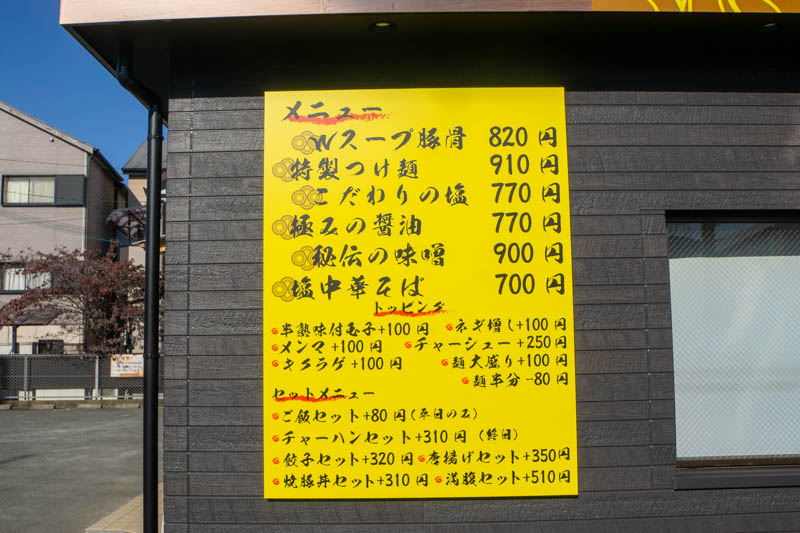 メニュー
Wスープ豚骨 820 円
特製つけ麺 910 円
こだわりの塩 770 円
極みの醤油 770 円
秘伝の味噌 900 円
塩中華そば 700 円
トッピング
半熟味付玉子+100 円 ネギ増し+100 円
メンマ+100 円 チャーシュー+250 円
キクラゲ+100 円 麺大盛り+100 円
麺半分-80 円
セットメニュー
ご飯セット+80 円(平日のみ)
チャーハンセット+310 円 (終日)
餃子セット+320 円 唐揚げセット+350円
焼豚丼セット+310 円 満腹セット+510円